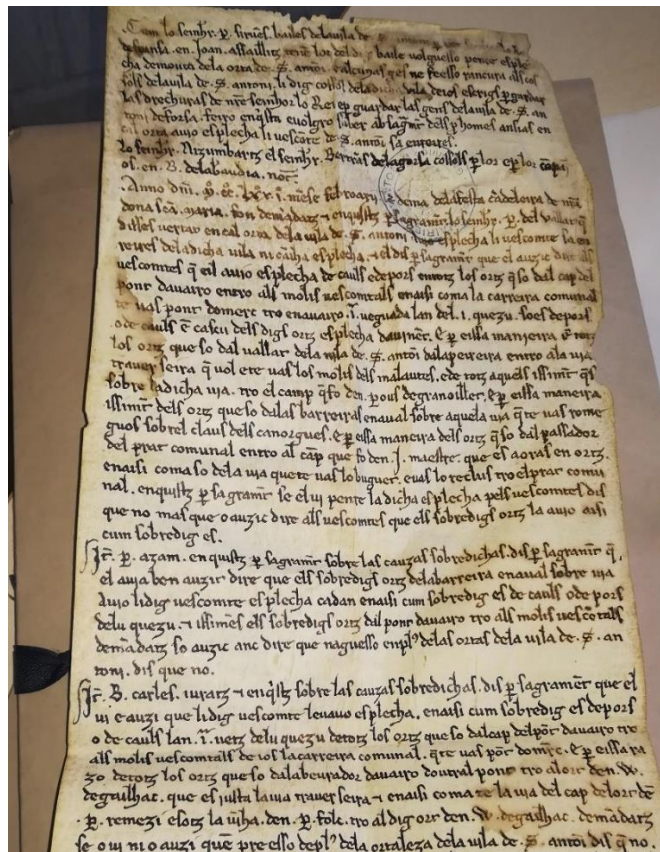 Cum lo senher .P. sirven. bailes dela vila de .S.
demanda. en Joan assaillitz tene loc del dig baile volguesso penre esple
cha de mouta dela orta de .S. antoni. e alcunas gens ne fesso rancura als cos
sols dela vila de .S. antoni. li dig cossol dela dicha vila
las drechuras de nostre senhor lo Rei e per guardar las gens dela vila de .S. an
toni de forsa. feiro enquista e volgro saber ab lagramen dels prohomes ansias en
cal orta avio esplecha li vescomte de .S. antoni sa enreires.
lo senher. Arzumbartz el senher. Bertrans delagorsa cossols per lor e per lor compai
os. en .B. delabaudia. not.
Anno dni. mese februarii dema dela festa cadeloira de ma
dona sca. maria. fon demadatz e enquistz per sagramen. lo senher .p. del vallat
disses vertat en cal orta dela vila de .S. antoni avio esplecha li vescomte sa en
reires dela dicha vila ni canha esplecha. el dis per sagramen que el auzic dire als
vescomtes q eil avio esplecha de cauls e de pors en totz los ortz q so dal cap del
pont davairo entro als molis vescomtals enaisi coma la carreira comunal
te vas pont domerc tro en avairo. i. veguada lan del .i. quezu. so es de pors
o de cauls e cascu dels digs ortz esplecha davinent. E per eissa maneira e totz
los ortz que so dal vallat dela vila de .S. antoni dalapeireira entro ala via
traverseira q vol ete vas los molis dels malautes. e de totz aquels issimen qs
sobre ladicha via. tro el camp q fo den .pons degranoillet. E per eissa maneira
issimen dels ortz que so dalas barreiras enaval sobre aquela via q te vas rome
guos sobrel claus dels canorgues. e per eissa maneira dels ortz q so dal passador
del prat comunal entro al camp que fo den .J. maestre. que es aoras en ortz.
enaisi coma so dela via que te vas lo buguet. e vas lo reclus tro el prat comu
nal. enquistz per sagramen se el vi penre la dicha esplecha pels vescomtes dis
que no mas que o auzic dire als vescomtes que els sobredigs ortz la avio aisi
cum sobredig es.
It. p. azam. enquistz per sagramen sobre las cauzas sobredichas. dis per sagramen q
el avia ben auzit dire que els sobredigs ortz delabarreira enaval sobre via
avio li dig vescomte esplecha cadan enaisi cum sobredig es de cauls o de pors
delu quezu. e issimen els sobredigs ortz dal pont davairo tro als molis vescotals
demadatz so auzic anc dire que naguesso empl dela ortas dela vila de .S. an
toni. dis que no.
It. B. carles. iuratz e enqstz sobre las cauzas sobredichas. dis per sagrament que el
vi e auzi que li dig vescomte levavo esplecha. enaisi cum sobredig es de pors
o de cauls lan .i. vetz delu quezu de totz los ortz que so dal cap del pot davairo tro
als molis vescomtals de ios la carreira comunal. q te vas pot domerc. E per eissa ra
zo de totz los ortz que so dalabeurador davairo doutral pont tro al ort den .W.
degailhac. que es iusta la via traverseira. e enaisi coma te la via del cap del ort de
.p. remezi e sotz la vinha. den .p. folc. tro al dig ort den .W. degailhac. demadatz
se o vi ni o auzi que preesso depl dela ortaleza dela vila de .S. antoni dis q no.